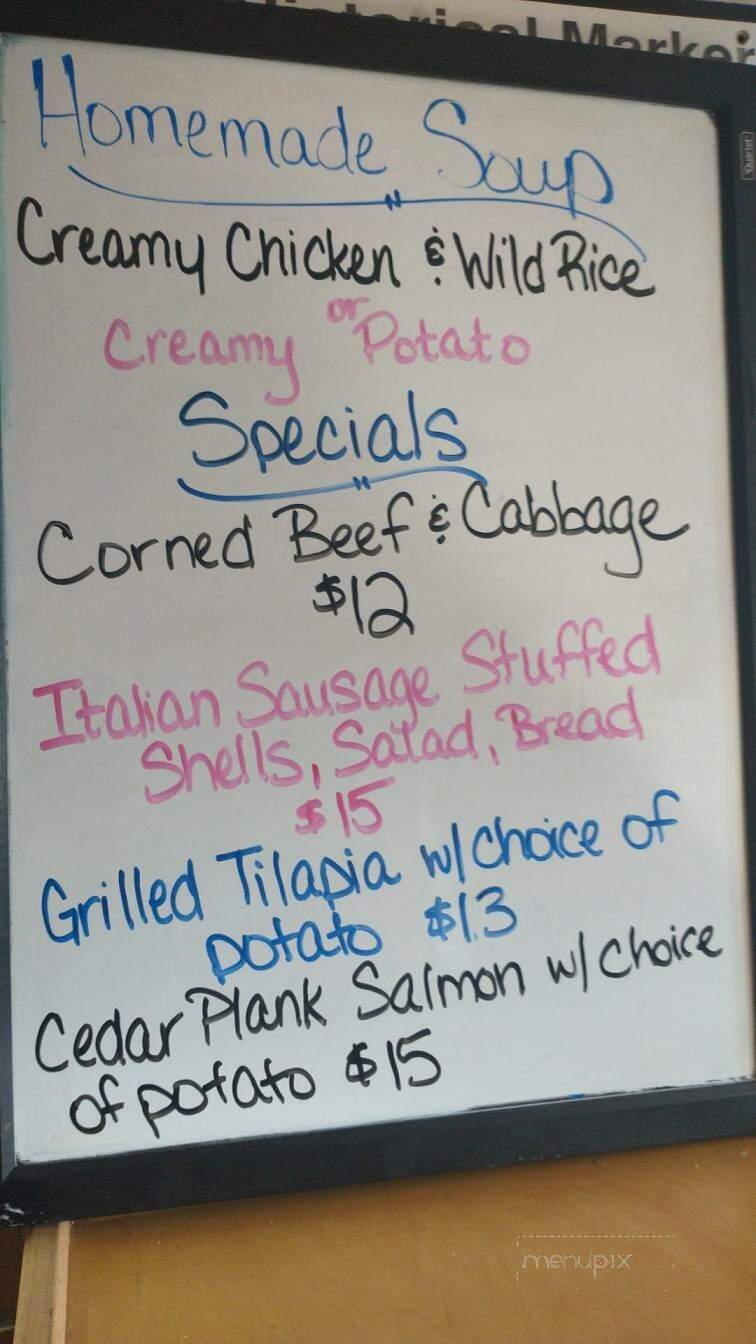 Historical Marker
Quartet
Homemade Soup
Creamy Chicken & Wild Rice
or
Creamy Potato
Specials
Corned Beef & Cabbage
$12
Italian Sausage Stuffed
Shells, Salad, Bread
$15
Grilled Tilapia w/ choice of
potato $13
Cedar Plank Salmon w/ choice
of potato $15
menupix